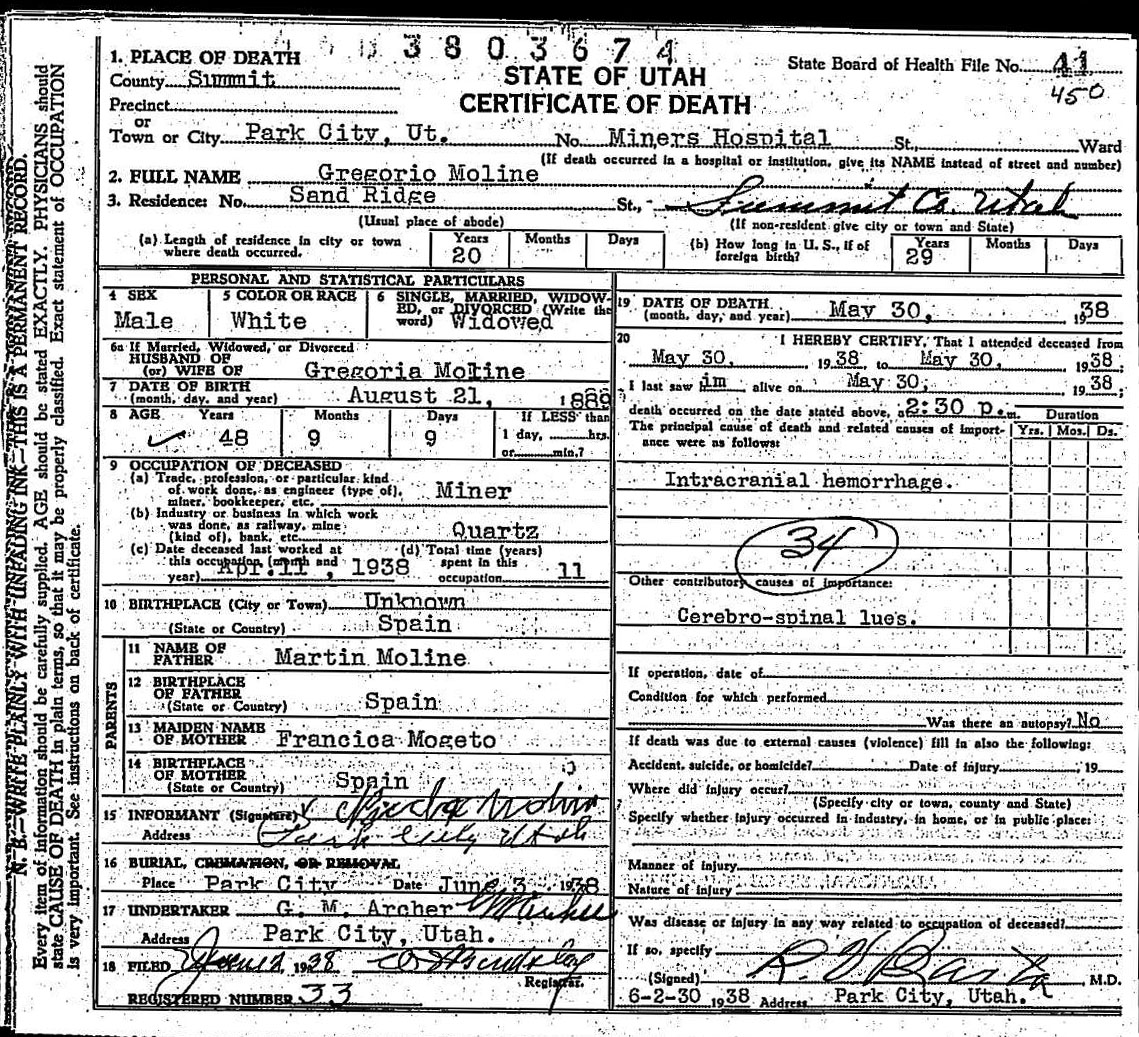 3803674
1. PLACE OF DEATH
STATE OF UTAH
CERTIFICATE OF DEATH
State Board of Health File No. 41
450
County Summit
Precinct
or
Town or City Park City, Ut. No. Miners Hospital St., Ward
(If death occurred in a hospital or institution, give its NAME instead of street and number)
2. FULL NAME Gregorio Moline
3. Residence: No. Sand Ridge St., Summit Co. Utah
(Usual place of abode) (If non-resident give city or town and State)
(a) Length of residence in city or town where death occurred. Years 20 Months Days
(b) How long in U. S., if of foreign birth? Years 29 Months Days
PERSONAL AND STATISTICAL PARTICULARS
4 SEX Male
5 COLOR OR RACE White
6 SINGLE, MARRIED, WIDOWED, or DIVORCED (Write the word) Widowed
6a If Married, Widowed, or Divorced
HUSBAND OF
(or) WIFE OF Gregoria Moline
7 DATE OF BIRTH
(month, day, and year) August 21, 1889
8 AGE Years 48 Months 9 Days 9 If LESS than
1 day, hrs.
or min.?
9 OCCUPATION OF DECEASED
(a) Trade, profession, or particular kind
of work done, as engineer (type of),
miner, bookkeeper, etc. Miner
(b) Industry or business in which work
was done, as railway, mine
(kind of), bank, etc. Quartz
(c) Date deceased last worked at
this occupation (month and
year) Apr. 11, 1938
(d) Total time (years)
spent in this
occupation 11
10 BIRTHPLACE (City or Town) Unknown
(State or Country) Spain
PARENTS
11 NAME OF
FATHER Martin Moline
12 BIRTHPLACE
OF FATHER
(State or Country) Spain
13 MAIDEN NAME
OF MOTHER Francica Mogeto
14 BIRTHPLACE
OF MOTHER
(State or Country) Spain
15 INFORMANT (Signature)
Address Park City Utah
16 BURIAL, CREMATION, OR REMOVAL
Place Park City Date June 3, 1938
17 UNDERTAKER G. M. Archer
Address Park City, Utah.
18 FILED June 2 1938
Registrar.
REGISTERED NUMBER 33
19 DATE OF DEATH
(month, day, and year) May 30, 1938
20 I HEREBY CERTIFY, That I attended deceased from
May 30, 1938, to May 30, 1938;
I last saw im alive on May 30, 1938;
death occurred on the date stated above, a 2:30 p.m. Duration
The principal cause of death and related causes of importance were as follows: Yrs. Mos. Ds.
Intracranial hemorrhage.
34
Other contributory causes of importance:
Cerebro-spinal lues.
If operation, date of
Condition for which performed
Was there an autopsy? No
If death was due to external causes (violence) fill in also the following:
Accident, suicide, or homicide? Date of injury , 19
Where did injury occur?
(Specify city or town, county and State)
Specify whether injury occurred in industry, in home, or in public place:
Manner of injury
Nature of injury
Was disease or injury in any way related to occupation of deceased?
If so, specify
(Signed) , M.D.
6-2-30 1938 Address Park City, Utah.
N. B.—WRITE PLAINLY WITH UNFADING INK—THIS IS A PERMANENT RECORD.
Every item of information should be carefully supplied. AGE should be stated EXACTLY. PHYSICIANS should
state CAUSE OF DEATH in plain terms, so that it may be properly classified. Exact statement of OCCUPATION
is very important. See instructions on back of certificate.